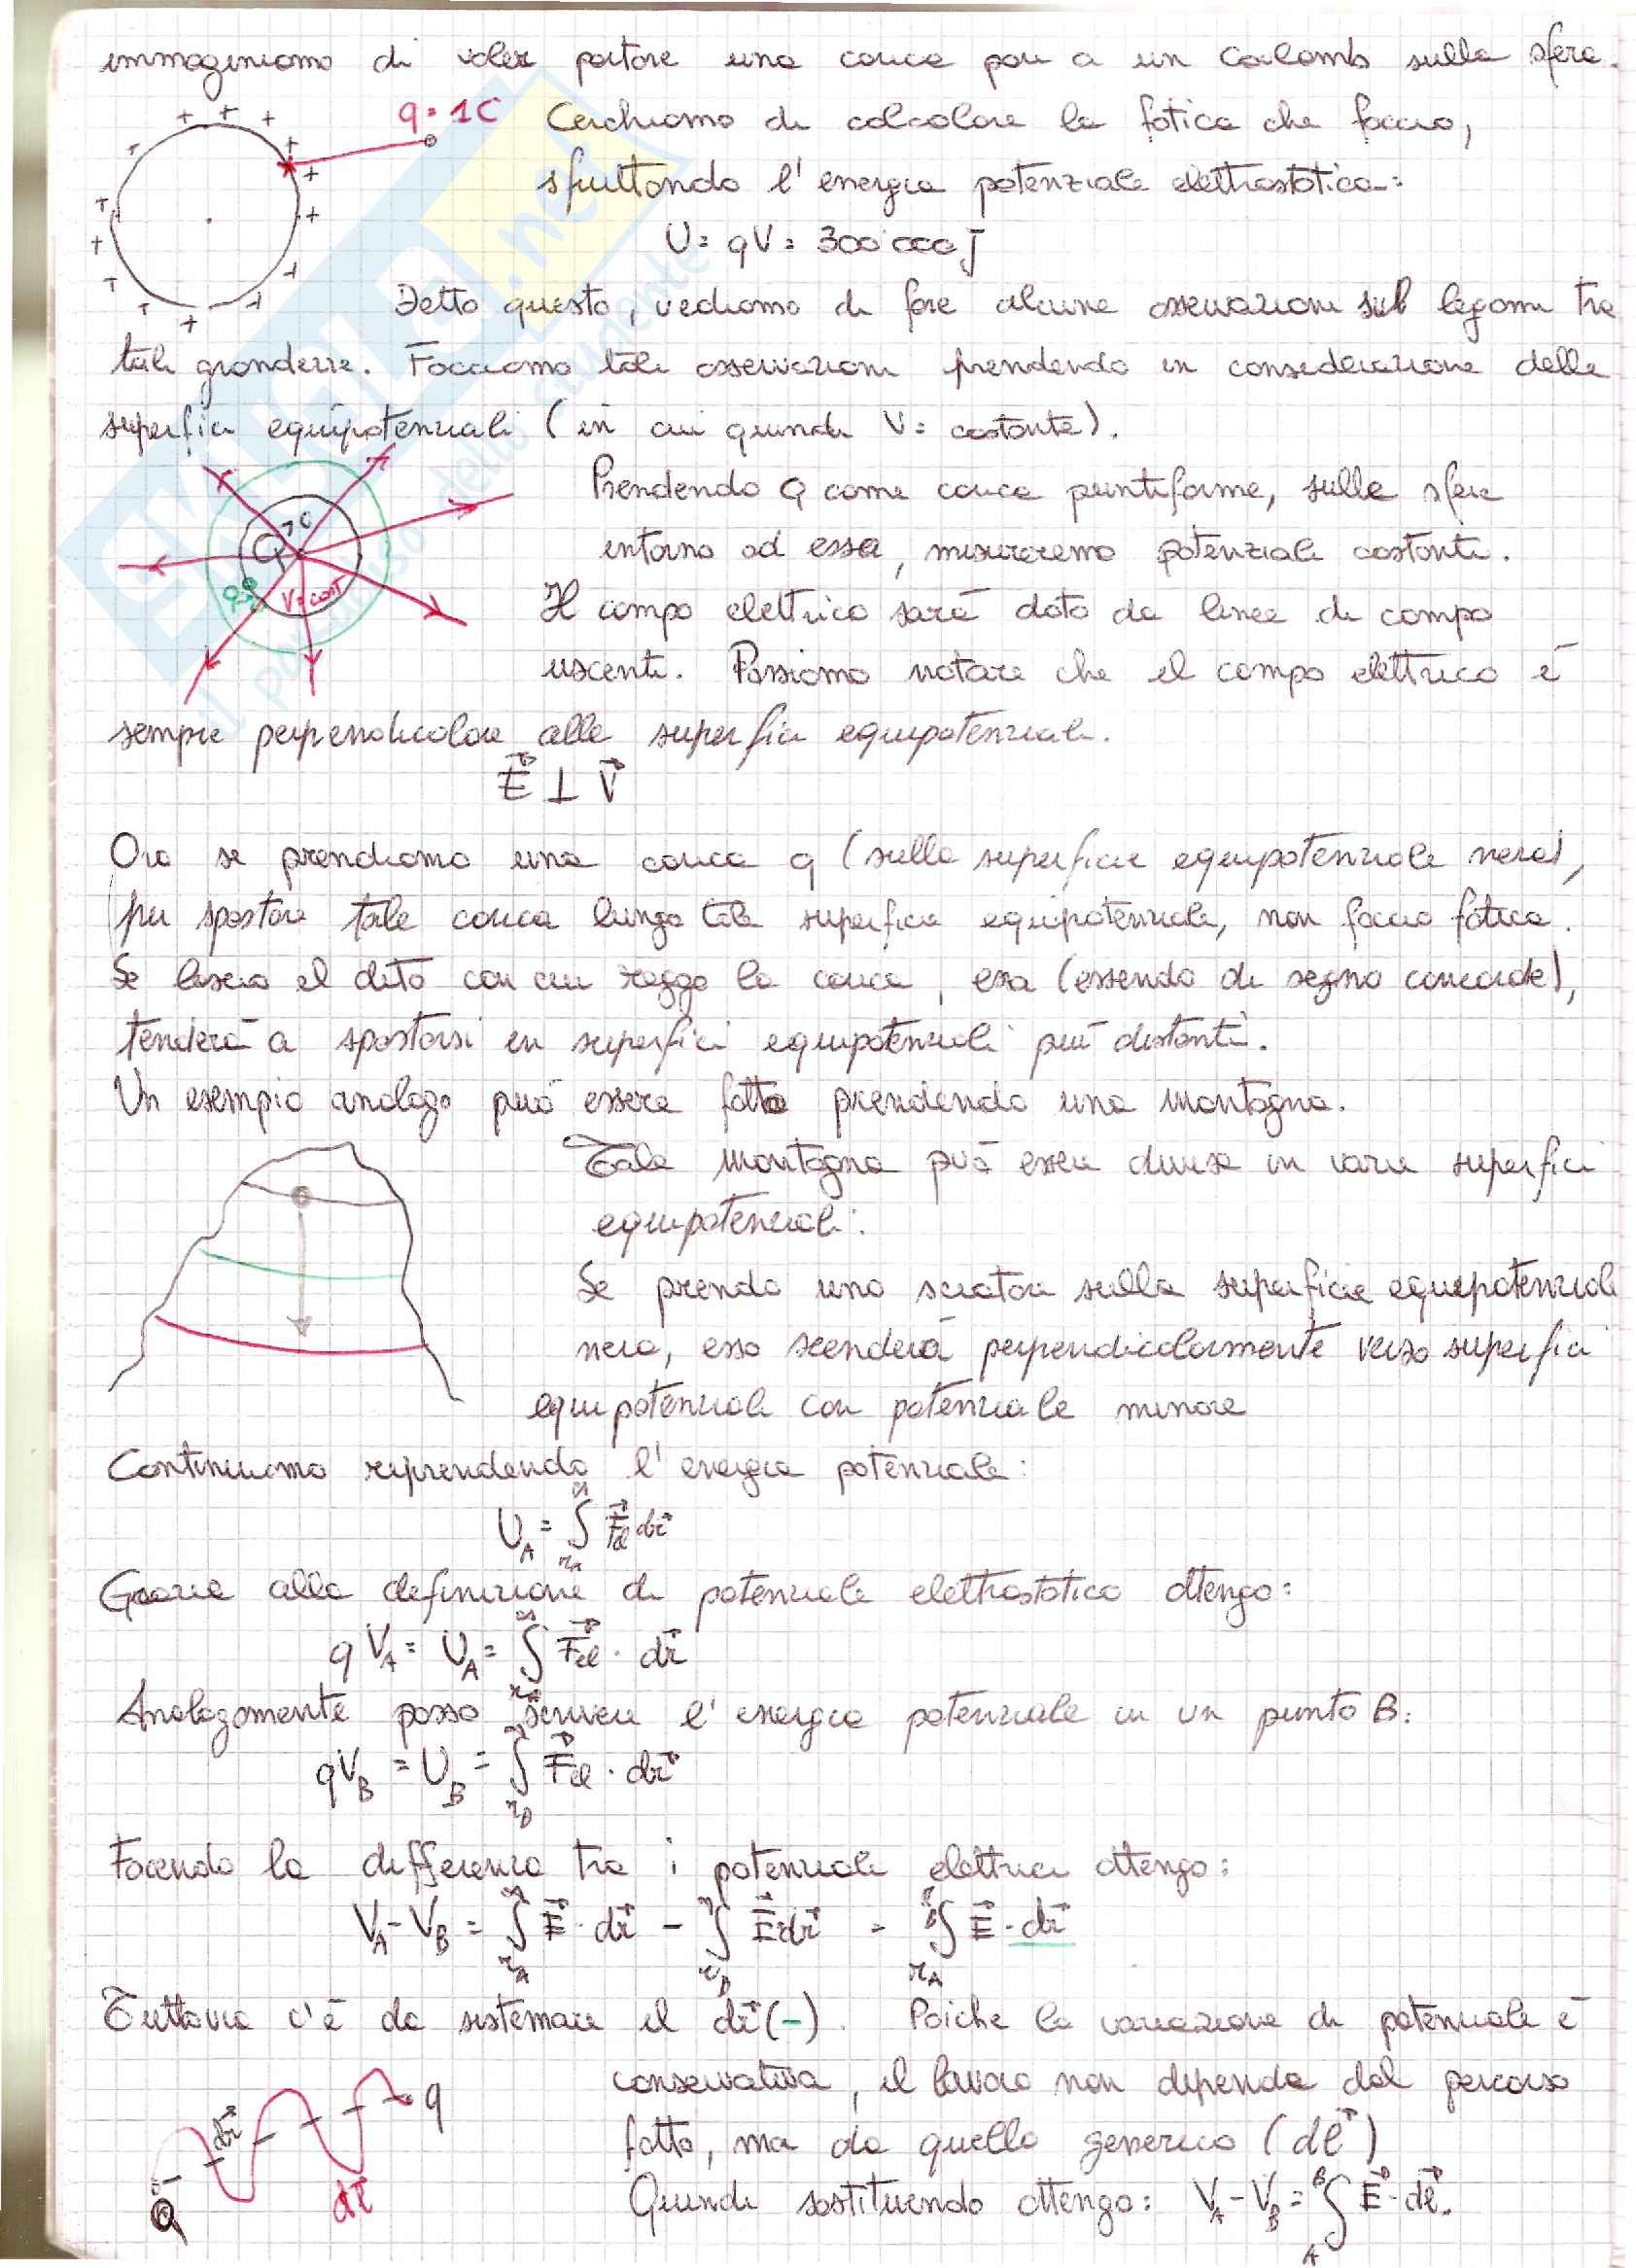 immaginiamo di voler portare una carica pari a un Coulomb sulla sfera.
q = 1C
Cerchiamo di calcolare la fatica che faccio,
sfruttando l'energia potenziale elettrostatica:
U = qV = 300'000 J
Detto questo, vediamo di fare alcune osservazioni sul legami tra
tali grandezze. Facciamo tali osservazioni prendendo in considerazione delle
superfici equipotenziali (in cui quindi V = costante).
Prendendo Q come carica puntiforme, sulla sfera
intorno ad essa, misureremo potenziale costante.
Q>0
V=cost
Il campo elettrico sarà dato da linee di campo
uscenti. Possiamo notare che il campo elettrico è
sempre perpendicolare alle superfici equipotenziali.
E⃗ ⊥ V⃗
Ora se prendiamo una carica q (sulla superficie equipotenziale nera),
per spostare tale carica lungo tale superficie equipotenziale, non faccio fatica.
Se lascio il dito con cui reggo la carica, essa (essendo di segno concorde),
tenderà a spostarsi in superfici equipotenziali più distanti.
Un esempio analogo può essere fatto prendendo una montagna.
Tale montagna può essere divisa in varie superfici
equipotenziali:
Se prendo uno sciatore sulla superficie equipotenziale
nera, esso scenderà perpendicolarmente verso superfici
equipotenziali con potenziale minore
Continuiamo riprendendo l'energia potenziale:
U_A = ∫_{r_A}^{∞} F⃗_el dr⃗
Grazie alla definizione di potenziale elettrostatico ottengo:
q V_A = U_A = ∫_{r_A}^{∞} F⃗_el · dr⃗
Analogamente posso scrivere l'energia potenziale in un punto B:
qV_B = U_B = ∫_{r_B}^{∞} F⃗_el · dr⃗
Facendo la differenza tra i potenziali elettrici ottengo:
V_A - V_B = ∫_{r_A}^{∞} E⃗ · dr⃗ - ∫_{r_B}^{∞} E⃗ dr⃗ = ∫_{r_A}^{r_B} E⃗ · dr⃗
Tuttavia c'è da sistemare il dr⃗ (-). Poiche la variazione di potenziale è
conservativa, il lavoro non dipende dal percorso
fatto, ma da quello generico (dl⃗)
q
dr⃗
dl⃗
Q
Quindi sostituendo ottengo: V_A - V_B = ∫_A^B E⃗ · dl⃗.